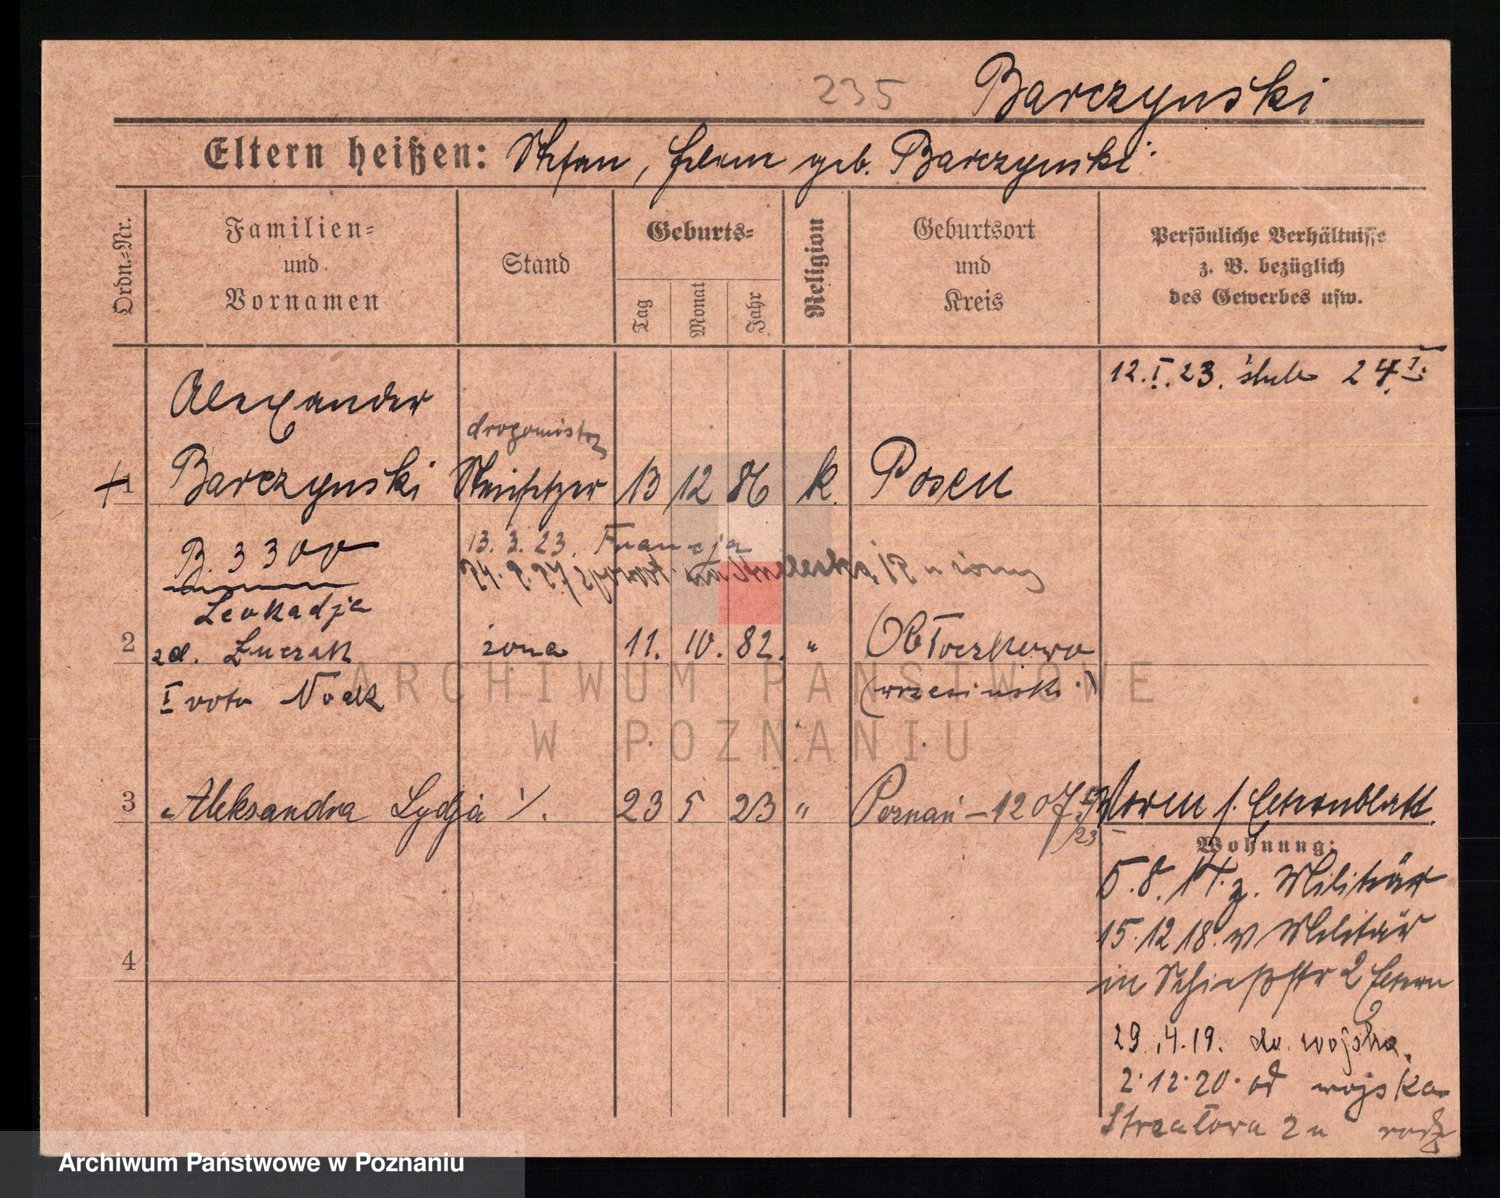 235 Barczynski
Eltern heißen: Stefan, geb. Barczynski
Ordn.-Nr.
Familien-
und
Vornamen
Stand
Geburts-
Tag
Monat
Jahr
Religion
Geburtsort
und
Kreis
Persönliche Verhältnisse
z. B. bezüglich
des Gewerbes usw.
12.I.23. ślub 24 I.
Alexander
drogomistrz
1 Barczynski Steinsetzer 13 12 86 k. Posen
B. 3300
13. 3. 23. Francja
Leokadja
2 zd. Łuczak żona 11. 10. 82. " Obłoczkowo
I voto Nock (wrzesiński)
3 Aleksandra Lydja 23 5 23 " Poznań - 1207
/23
Vorm s. Elternblatt.
Wohnung:
5.8.14. z. Militär
15.12.18. v Militär
in Schießstr 2 Eltern
29.4.19. do wojska.
2.12.20. od wojska
Strzałowa 2 u rodz
4
ARCHIWUM PAŃSTWOWE
W POZNANIU
Archiwum Państwowe w Poznaniu